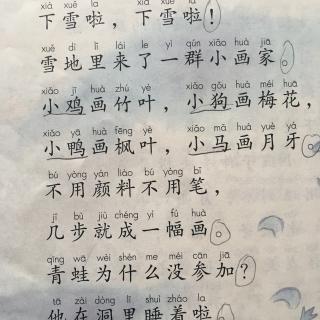 xià xuě la xià xuě la
下雪啦，下雪啦！
xuě dì lǐ lái le yì qún xiǎo huà jiā
雪地里来了一群小画家。
xiǎo jī huà zhú yè xiǎo gǒu huà méi huā
小鸡画竹叶，小狗画梅花，
xiǎo yā huà fēng yè xiǎo mǎ huà yuè yá
小鸭画枫叶，小马画月牙。
bú yòng yán liào bú yòng bǐ
不用颜料不用笔，
jǐ bù jiù chéng yì fú huà
几步就成一幅画。
qīng wā wèi shén me méi cān jiā
青蛙为什么没参加？
tā zài dòng lǐ shuì zháo la
他在洞里睡着啦